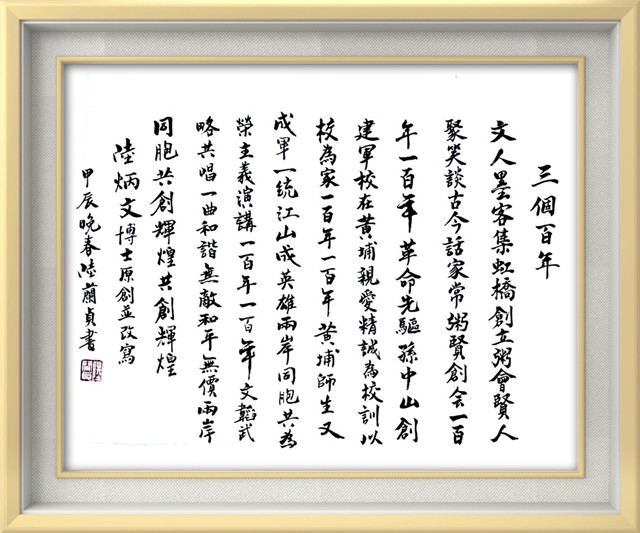 三個百年
文人墨客集虹橋創立粥會賢人
聚笑談古今話家常粥賢創会一百
年一百年革命先驅孫中山創
建軍校在黃埔親愛精誠為校訓以
校為家一百年一百年黃埔師生又
成軍一統江山成英雄兩岸同胞共為
榮主義演講一百年一百年文韜武
略共唱一曲和諧無敵和平無價兩岸
同胞共創輝煌共創輝煌
陸炳文博士原創並改寫
甲辰晚春陸蘭貞書